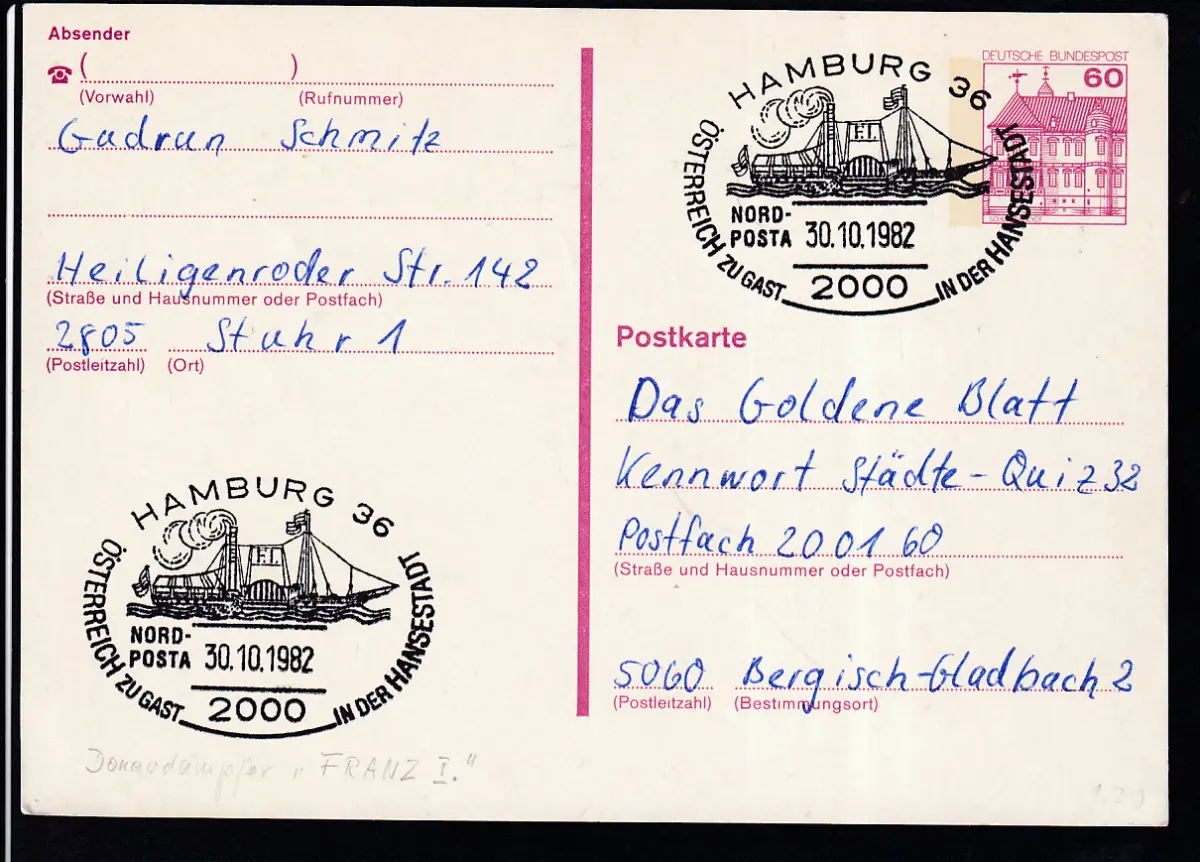 Absender
( )
(Vorwahl) (Rufnummer)
Gudrun Schmitz
Heiligenroder Str. 142
(Straße und Hausnummer oder Postfach)
2805 Stuhr 1
(Postleitzahl) (Ort)
HAMBURG 36
F.I.
ÖSTERREICH ZU GAST IN DER HANSESTADT
NORD-
POSTA 30.10.1982
2000
Donaudampfer "FRANZ I."
DEUTSCHE BUNDESPOST
60
HAMBURG 36
F.I.
ÖSTERREICH ZU GAST IN DER HANSESTADT
NORD-
POSTA 30.10.1982
2000
Postkarte
Das Goldene Blatt
Kennwort Städte-Quiz 32
Postfach 20 01 60
(Straße und Hausnummer oder Postfach)
5060 Bergisch-Gladbach 2
(Postleitzahl) (Bestimmungsort)
1.20